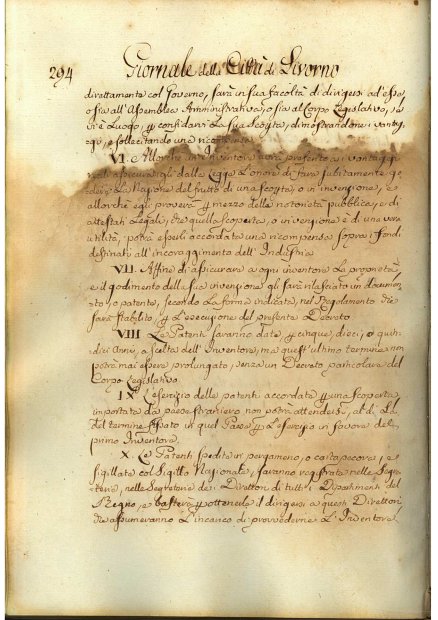 294 Giornale della Città di Livorno
direttamente col Governo, sarà in sua facoltà di dirigersi ad esso
o sia all'Assemblea Amministrativa, o sia al Corpo Legislativo, se
vi è Luogo, p confidarvi La sua Scoperta, dimostrandone i vantag,
egi, e sollecitando una ricompensa.
VI. Allorchè un inventore avrà
gli dalla Legge L'onore di farà subitamente go,
dere La Nazione del frutto di una scoperta, o invenzione, e
allorchè egli proverà p mezzo della notorietà pubblica, e di
attestati Legali, che quella scoperta, o invenzione è di una vera
utilità, potrà esserli accordata una ricompensa sopra i fondi
destinati all'incoraggimento dell'Industria.
VII. Affine di assicurare a ogni inventore La proprietà
e il godimento della sua invenzione gli sarà rilasciato un documen,
to, o patente, secondo La forma indicata, nel Regolamento che
sarà stabilito, p L'esecuzione del presente Decreto.
VIII Le Patenti saranno date p cinque, dieci, o quin,
dici Anni, a scelta dell'Inventore, ma quest'ultimo termine non
potrà mai essere prolungato, senza un Decreto particolare del
Corpo Legislativo.
IX L'esercizio delle patenti accordate p una scoperta
importata da paese straniero non potrà attendersi, al di là
del termine fissato in quel Paese p L'esercizio in favore del
primo Inventore.
X. Le Patenti spedite in pergameno, o cartapecora, e
sigillate col Sigillo Nazionale, saranno registrate nelle Segre
terie, nelle Segreterie dei Direttori di tutti i Dipartimenti del
Regno, e basterà p ottenerle il dirigersi a questi Direttori
che assumeranno L'incarico di provvederne L'Inventore.